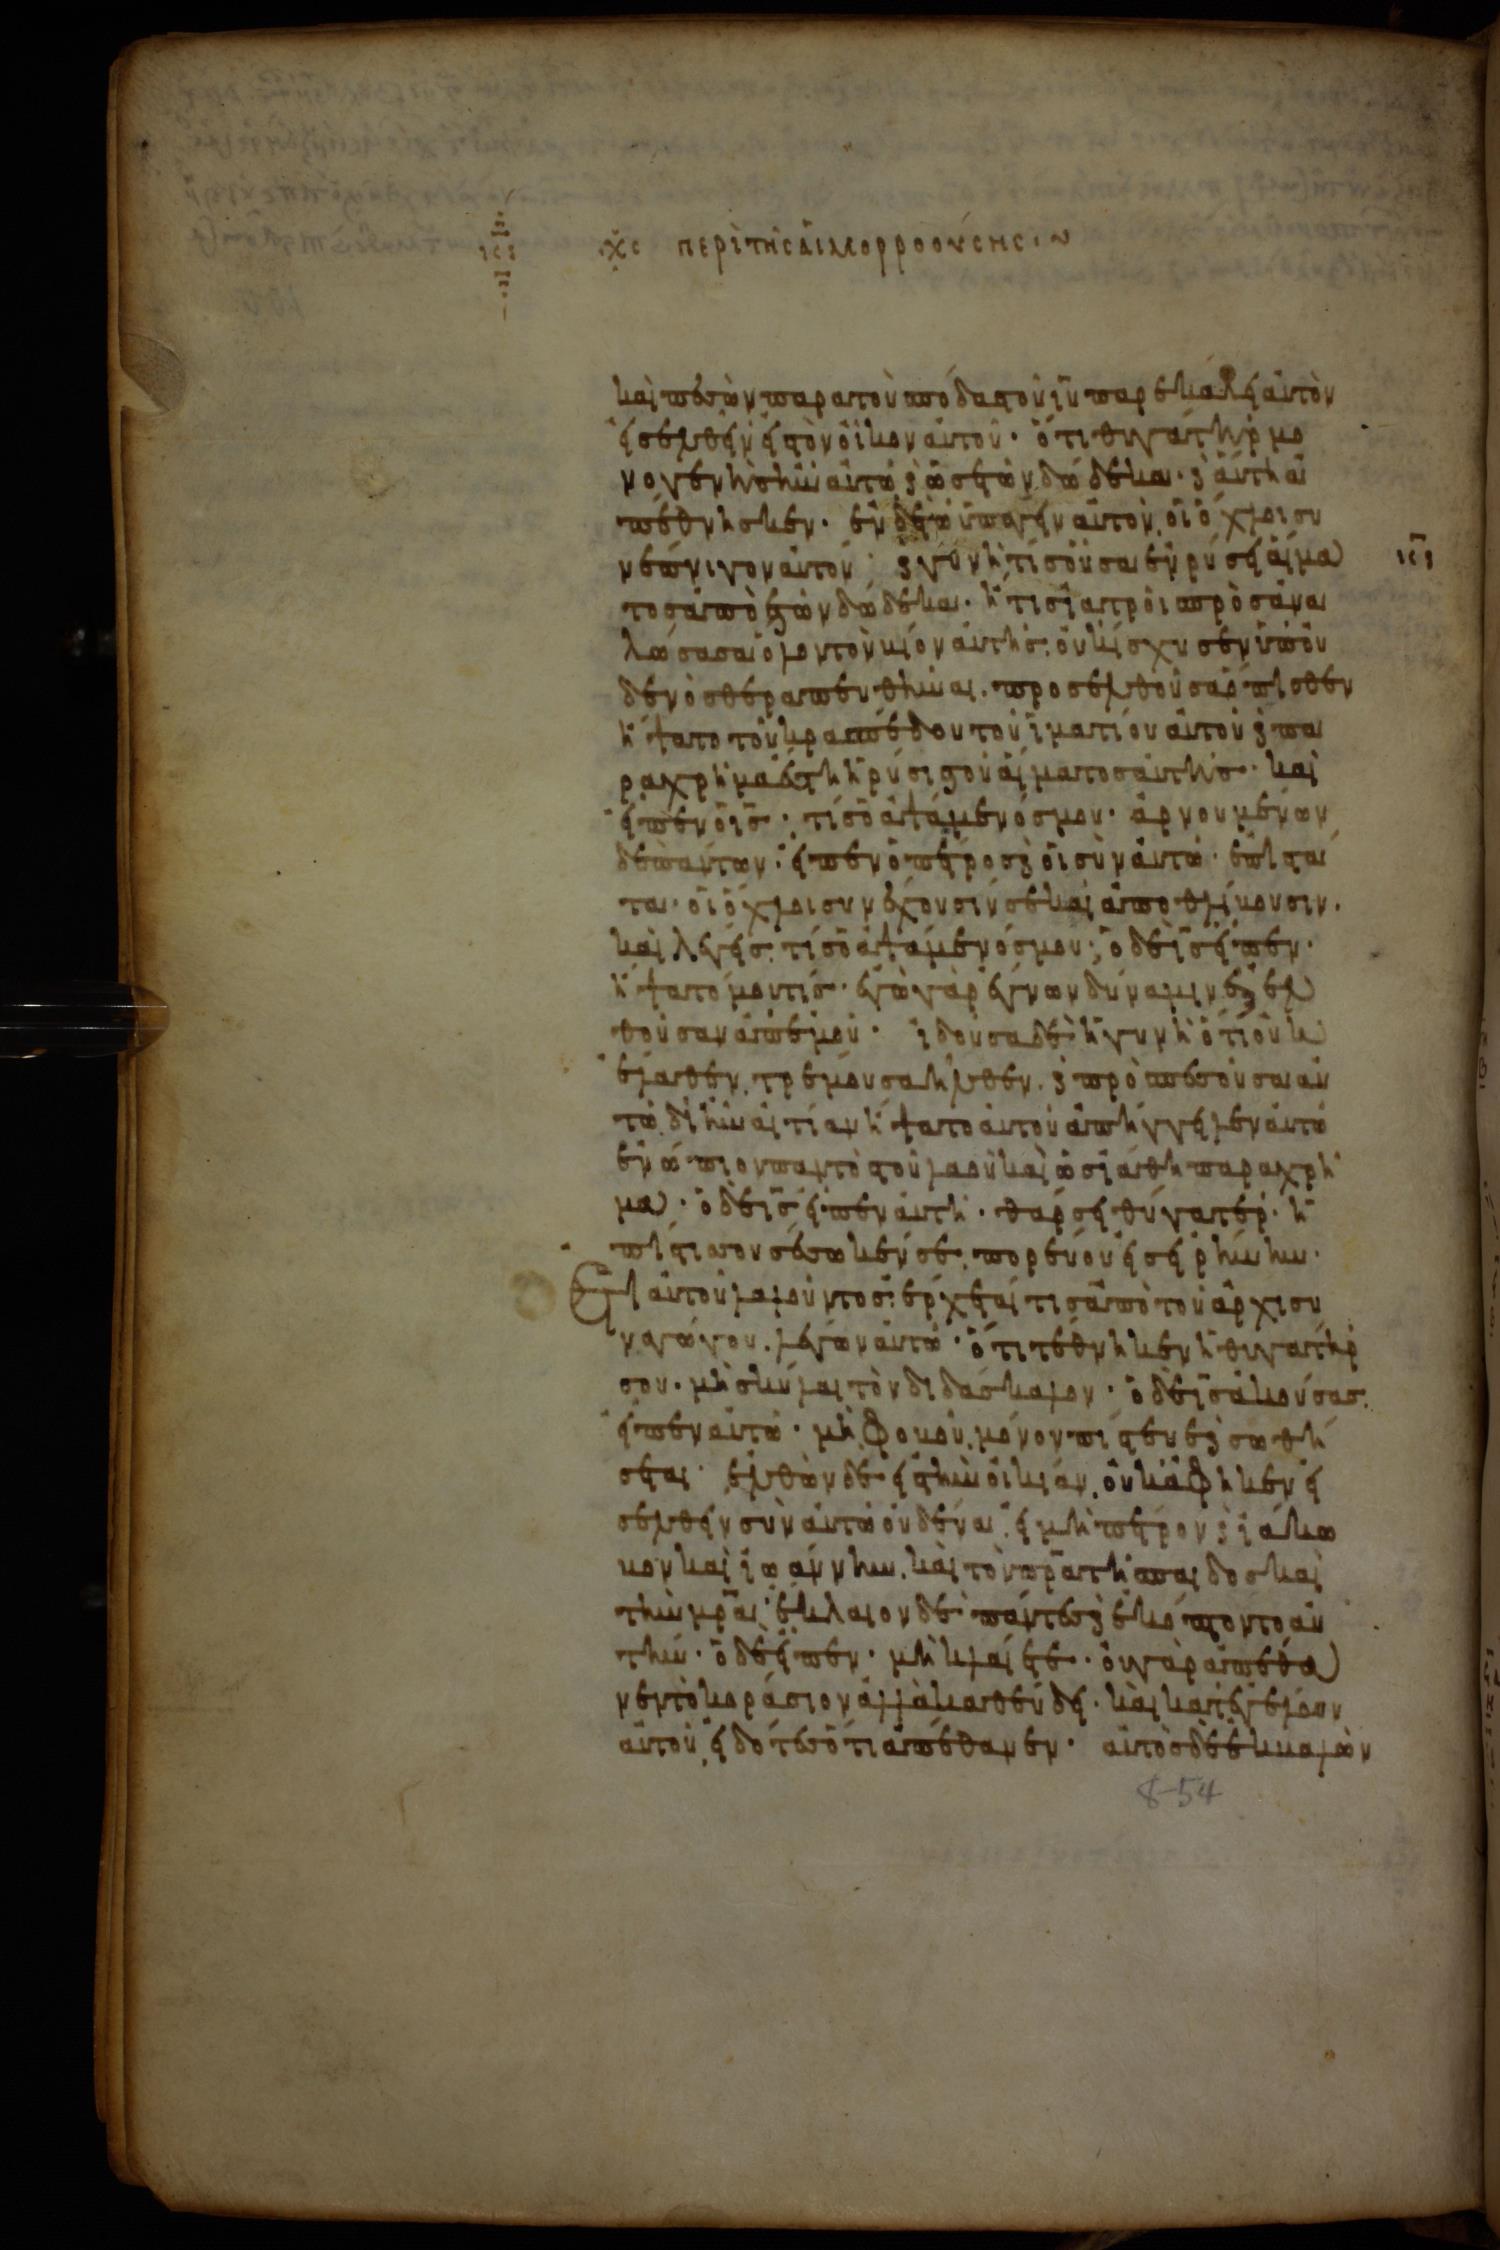 ιϛ κϛ περὶ τῆς αἱμορροούσης
καὶ πεσὼν παρὰ τοὺς πόδας τοῦ ιυ παρεκάλει αὐτὸν
εἰσελθεῖν εἰς τὸν οἶκον αὐτοῦ· ὅτι θυγάτηρ μο
νογενὴς ἦν αὐτῷ ϗ ὡς ἐτῶν δώδεκα· ϗ αὕτη ἀ
πέθνησκεν· ἐν δὲ τῷ ὑπάγειν αὐτὸν, οἱ ὄχλοι συ
νέπνιγον αὐτόν· ϗ γυνή τις οὖσα ἐν ῥύσει αἵμα
ιϛ
τος ἀπὸ ἐτῶν δώδεκα· ἥτις ἰατροῖς προσανα
λώσασα ὅλον τὸν βίον αὐτῆς. οὐκ ἴσχυσεν ὑπ' οὐ
δενὸς θεραπευθῆναι. προσελθοῦσα ὄπισθεν
ἥψατο τοῦ κρασπέδου τοῦ ἱματίου αὐτοῦ ϗ πα
ραχρῆμα ἔστη ἡ ῥύσις τοῦ αἵματος αὐτῆς· καὶ
εἶπεν ὁ ις· τίς ὁ ἁψάμενός μου· ἀρνουμένων
δὲ πάντων· εἶπεν ὁ πέτρος ϗ οἱ σὺν αὐτῷ· ἐπιστά
τα· οἱ ὄχλοι συνέχουσίν σε καὶ ἀποθλίβουσιν.
καὶ λέγεις· τίς ὁ ἁψάμενός μου· ὁ δὲ ις εἶπεν·
ἥψατό μου τις· ἐγὼ γὰρ ἔγνων δύναμιν ἐξελ
θοῦσαν ἀπ' ἐμοῦ· ἰδοῦσα δὲ ἡ γυνὴ ὅτι οὐκ
ἔλαθεν, τρέμουσα ἦλθεν. ϗ προπεσοῦσα αὐ
τῷ δι' ἣν αἰτίαν ἥψατο αὐτοῦ ἀπήγγειλεν αὐτῷ
ἐνώπιον παντὸς τοῦ λαοῦ καὶ ὡς ἰάθη παραχρῆ
μα· ὁ δὲ ις εἶπεν αὐτῇ· θάρσει θύγατερ· ἡ
πίστις σου σέσωκέν σε. πορεύου εἰς εἰρήνην·
Ἔτι αὐτοῦ λαλοῦντος· ἔρχεταί τις ἀπὸ τοῦ ἀρχισυ
ναγώγου. λέγων αὐτῷ· ὅτι τέθνηκεν ἡ θυγάτηρ
σου· μὴ σκύλλε τὸν διδάσκαλον· ὁ δὲ ις ἀκούσας
εἶπεν αὐτῷ· μὴ φοβοῦ, μόνον πίστευε ϗ σωθή
σεται· ἐλθὼν δὲ εἰς τὴν οἰκίαν, οὐκ ἀφῆκεν εἰ
σελθεῖν σὺν αὐτῷ οὐδένα. εἰ μὴ πέτρον ϗ ἰάκω
βον καὶ ἰωάννην. καὶ τὸν πρα τῆς παιδὸς καὶ
τὴν μρα· ἔκλαιον δὲ πάντες ϗ ἐκόπτοντο αὐ
τήν· ὁ δὲ εἶπεν· μὴ κλαίετε· οὐ γὰρ ἀπέθα
νεν τὸ κοράσιον ἀλλὰ καθεύδει· καὶ κατεγέλουν
αὐτοῦ, εἰδότες ὅτι ἀπέθανεν· αὐτὸς δὲ ἐκβαλὼν
8-54